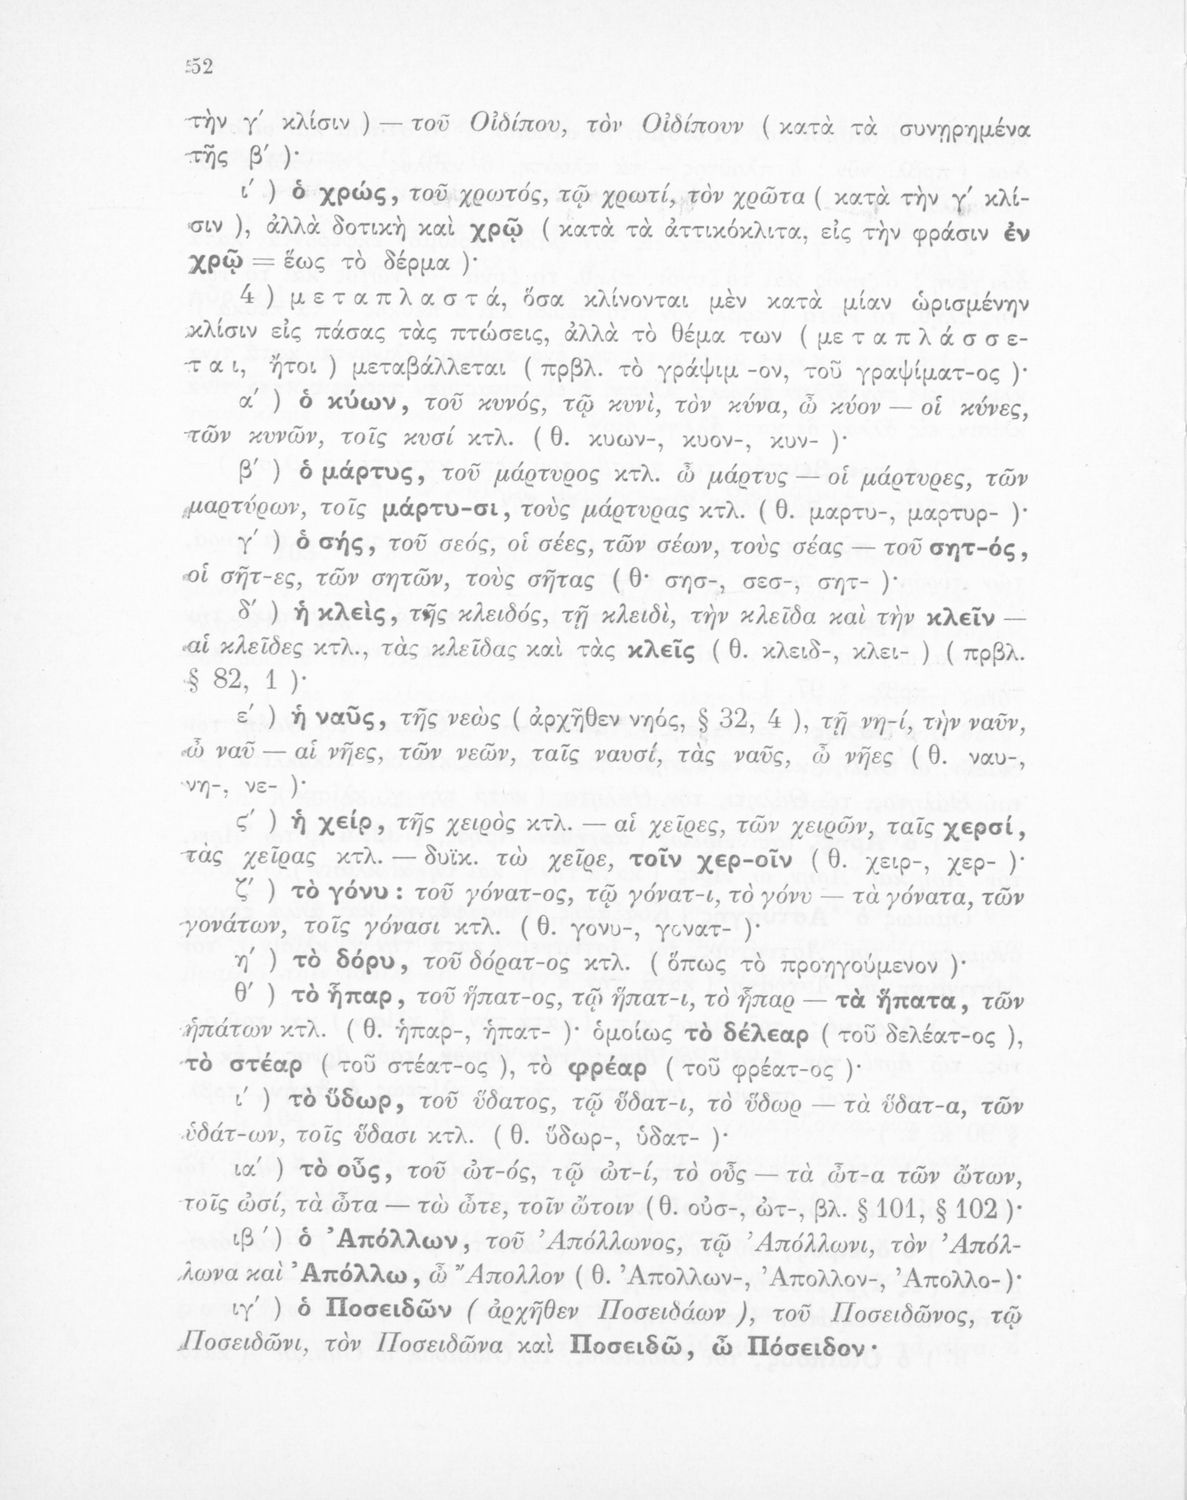 52
τὴν γ΄ κλίσιν ) — τοῦ Οἰδίπου, τὸν Οἰδίπουν ( κατὰ τὰ συνῃρημένα
τῆς β΄ )·
ι΄ ) ὁ χρώς, τοῦ χρωτός, τῷ χρωτί, τὸν χρῶτα ( κατὰ τὴν γ΄ κλί-
σιν ), ἀλλὰ δοτικὴ καὶ χρῷ ( κατὰ τὰ ἀττικόκλιτα, εἰς τὴν φράσιν ἐν
χρῷ = ἕως τὸ δέρμα )·
4 ) μεταπλαστά, ὅσα κλίνονται μὲν κατὰ μίαν ὡρισμένην
κλίσιν εἰς πάσας τὰς πτώσεις, ἀλλὰ τὸ θέμα των ( μεταπλάσσε-
ται, ἤτοι ) μεταβάλλεται ( πρβλ. τὸ γράψιμ -ον, τοῦ γραψίματ-ος )·
α΄ ) ὁ κύων, τοῦ κυνός, τῷ κυνὶ, τὸν κύνα, ὦ κύον — οἱ κύνες,
τῶν κυνῶν, τοῖς κυσί κτλ. ( θ. κυων-, κυον-, κυν- )·
β΄ ) ὁ μάρτυς, τοῦ μάρτυρος κτλ. ὦ μάρτυς — οἱ μάρτυρες, τῶν
μαρτύρων, τοῖς μάρτυ-σι, τοὺς μάρτυρας κτλ. ( θ. μαρτυ-, μαρτυρ- )·
γ΄ ) ὁ σής, τοῦ σεός, οἱ σέες, τῶν σέων, τοὺς σέας — τοῦ σητ-ός,
οἱ σῆτ-ες, τῶν σητῶν, τοὺς σῆτας ( θ· σησ-, σεσ-, σητ- )·
δ΄ ) ἡ κλεὶς, τῆς κλειδός, τῇ κλειδὶ, τὴν κλεῖδα καὶ τὴν κλεῖν —
αἱ κλεῖδες κτλ., τὰς κλεῖδας καὶ τὰς κλεῖς ( θ. κλειδ-, κλει- ) ( πρβλ.
§ 82, 1 )·
ε΄ ) ἡ ναῦς, τῆς νεὼς ( ἀρχῆθεν νηός, § 32, 4 ), τῇ νη-ί, τὴν ναῦν,
ὦ ναῦ — αἱ νῆες, τῶν νεῶν, ταῖς ναυσί, τὰς ναῦς, ὦ νῆες ( θ. ναυ-,
νη-, νε- )·
ς΄ ) ἡ χείρ, τῆς χειρὸς κτλ. — αἱ χεῖρες, τῶν χειρῶν, ταῖς χερσί,
τὰς χεῖρας κτλ. — δυϊκ. τὼ χεῖρε, τοῖν χερ-οῖν ( θ. χειρ-, χερ- )·
ζ΄ ) τὸ γόνυ : τοῦ γόνατ-ος, τῷ γόνατ-ι, τὸ γόνυ — τὰ γόνατα, τῶν
γονάτων, τοῖς γόνασι κτλ. ( θ. γονυ-, γονατ- )·
η΄ ) τὸ δόρυ, τοῦ δόρατ-ος κτλ. ( ὅπως τὸ προηγούμενον )·
θ΄ ) τὸ ἧπαρ, τοῦ ἥπατ-ος, τῷ ἥπατ-ι, τὸ ἧπαρ — τὰ ἥπατα, τῶν
ἡπάτων κτλ. ( θ. ἡπαρ-, ἡπατ- )· ὁμοίως τὸ δέλεαρ ( τοῦ δελέατ-ος ),
τὸ στέαρ ( τοῦ στέατ-ος ), τὸ φρέαρ ( τοῦ φρέατ-ος )·
ι΄ ) τὸ ὕδωρ, τοῦ ὕδατος, τῷ ὕδατ-ι, τὸ ὕδωρ — τὰ ὕδατ-α, τῶν
ὑδάτ-ων, τοῖς ὕδασι κτλ. ( θ. ὕδωρ-, ὑδατ- )·
ια΄ ) τὸ οὖς, τοῦ ὠτ-ός, τῷ ὠτ-ί, τὸ οὖς — τὰ ὦτ-α τῶν ὤτων,
τοῖς ὠσί, τὰ ὦτα — τὼ ὦτε, τοῖν ὤτοιν (θ. οὐσ-, ὠτ-, βλ. § 101, § 102 )·
ιβ΄) ὁ Ἀπόλλων, τοῦ Ἀπόλλωνος, τῷ Ἀπόλλωνι, τὸν Ἀπόλ-
λωνα καὶ Ἀπόλλω, ὦ Ἄπολλον ( θ. Ἀπολλων-, Ἀπολλον-, Ἀπολλο-)·
ιγ΄ ) ὁ Ποσειδῶν ( ἀρχῆθεν Ποσειδάων ), τοῦ Ποσειδῶνος, τῷ
Ποσειδῶνι, τὸν Ποσειδῶνα καὶ Ποσειδῶ, ὦ Πόσειδον·